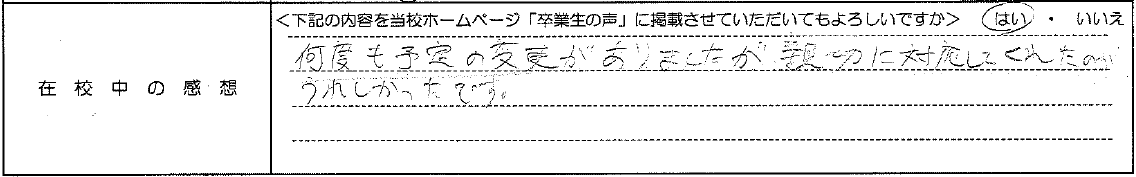 ＜下記の内容を当校ホームページ「卒業生の声」に掲載させていただいてもよろしいですか＞ はい ・ いいえ
在校中の感想
何度も予定の変更がありましたが 親切に対応してくれたのが
うれしかったです。